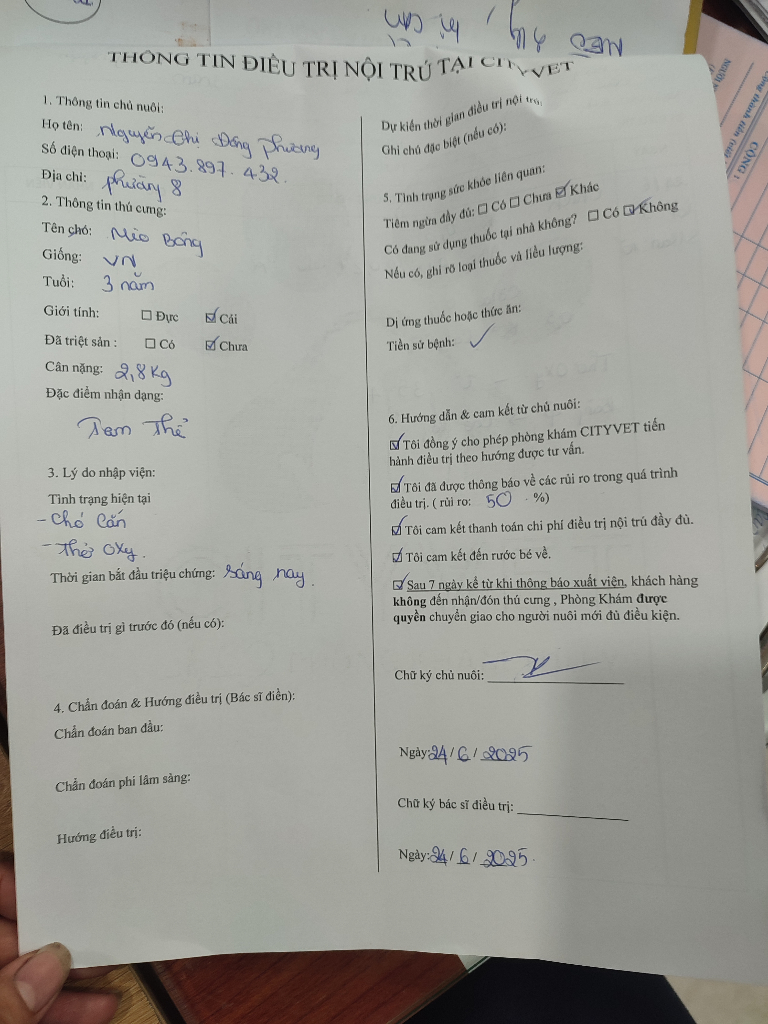 THÔNG TIN ĐIỀU TRỊ NỘI TRÚ TẠI CITYVET
1. Thông tin chủ nuôi:
Họ tên: Nguyễn Chị Đông Phương
Số điện thoại: 0943.897.432.
Địa chỉ: phường 8
2. Thông tin thú cưng:
Tên chó: Mèo Bông
Giống: VN
Tuổi: 3 năm
Giới tính: ☐ Đực ☑ Cái
Đã triệt sản : ☐ Có ☑ Chưa
Cân nặng: 2,8Kg
Đặc điểm nhận dạng:
Tam Thể
3. Lý do nhập viện:
Tình trạng hiện tại
- Chó Cắn
- Thở OXy.
Thời gian bắt đầu triệu chứng: Sáng nay.
Đã điều trị gì trước đó (nếu có):
4. Chẩn đoán & Hướng điều trị (Bác sĩ điền):
Chẩn đoán ban đầu:
Chẩn đoán phi lâm sàng:
Hướng điều trị:
Dự kiến thời gian điều trị nội trú:
Ghi chú đặc biệt (nếu có):
5. Tình trạng sức khỏe liên quan:
Tiêm ngừa đầy đủ: ☐ Có ☐ Chưa ☑ Khác
Có đang sử dụng thuốc tại nhà không? ☐ Có ☑ Không
Nếu có, ghi rõ loại thuốc và liều lượng:
Dị ứng thuốc hoặc thức ăn:
Tiền sử bệnh: ✓
6. Hướng dẫn & cam kết từ chủ nuôi:
☑ Tôi đồng ý cho phép phòng khám CITYVET tiến
hành điều trị theo hướng được tư vấn.
☑ Tôi đã được thông báo về các rủi ro trong quá trình
điều trị. ( rủi ro: 50 %)
☑ Tôi cam kết thanh toán chi phí điều trị nội trú đầy đủ.
☑ Tôi cam kết đến rước bé về.
☑ Sau 7 ngày kể từ khi thông báo xuất viện, khách hàng
không đến nhận/đón thú cưng , Phòng Khám được
quyền chuyển giao cho người nuôi mới đủ điều kiện.
Chữ ký chủ nuôi:
Ngày: 24/6/2025
Chữ ký bác sĩ điều trị:
Ngày: 24/6/2025.
CỘNG :